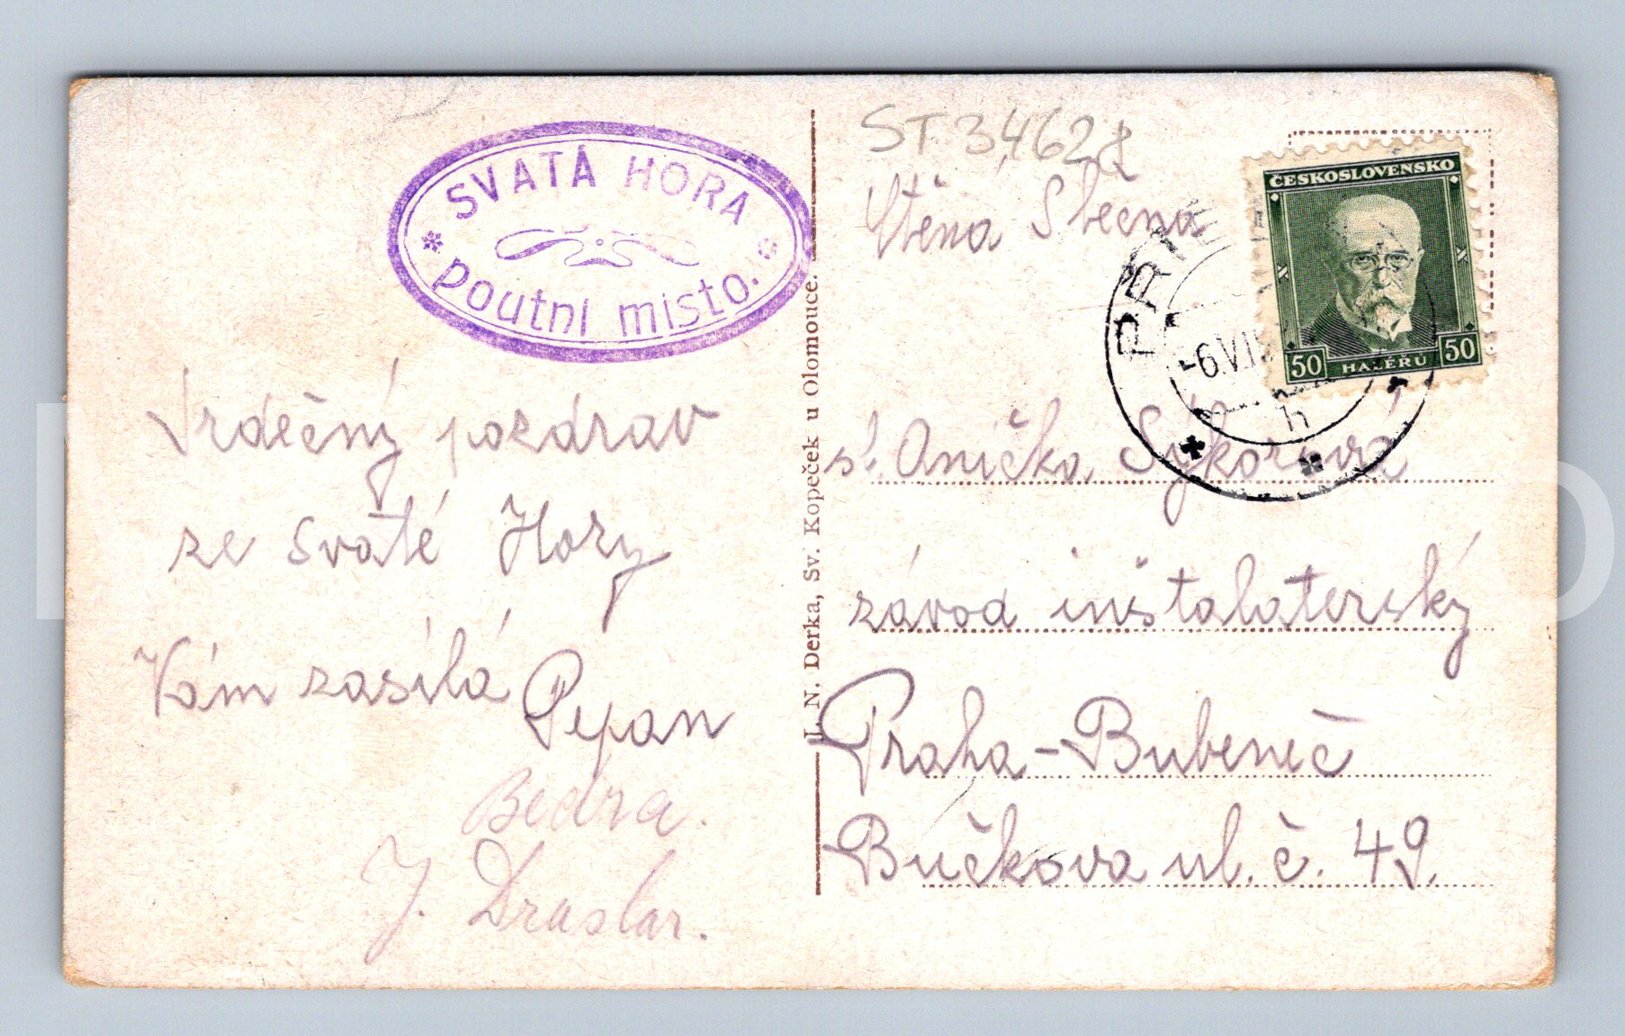 SVATÁ HORA
poutní místo.
Srdečný pozdrav
ze svaté Hory
Vám zasílá Pepan
J. N. Derka, Sv. Kopeček u Olomouce.
ST. 3462
ČESKOSLOVENSKO
50 HALÉŘŮ 50
PŘÍ
-6.VII
h
sl. Anička Sýkorová
závod inštalaterský
Praha-Bubeneč
Bučkova ul. č. 49.